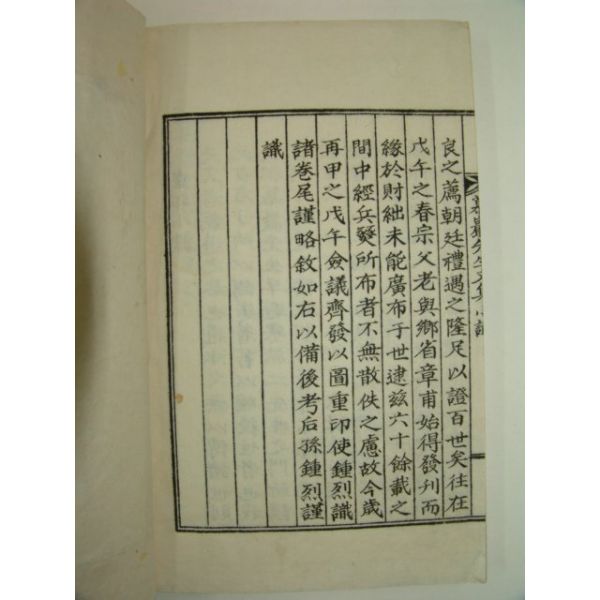 良之薦朝廷禮遇之隆足以證百世矣往在
戊午之春宗父老與鄉省章甫始得發刊而
緣於財絀未能廣布于世逮玆六十餘載之
間中經兵燹所布者不無散佚之慮故今歲
再甲之戊午僉議齊發以圖重印使鍾烈識
諸卷尾謹略敘如右以備後考后孫鍾烈謹
識
先生文集 小識